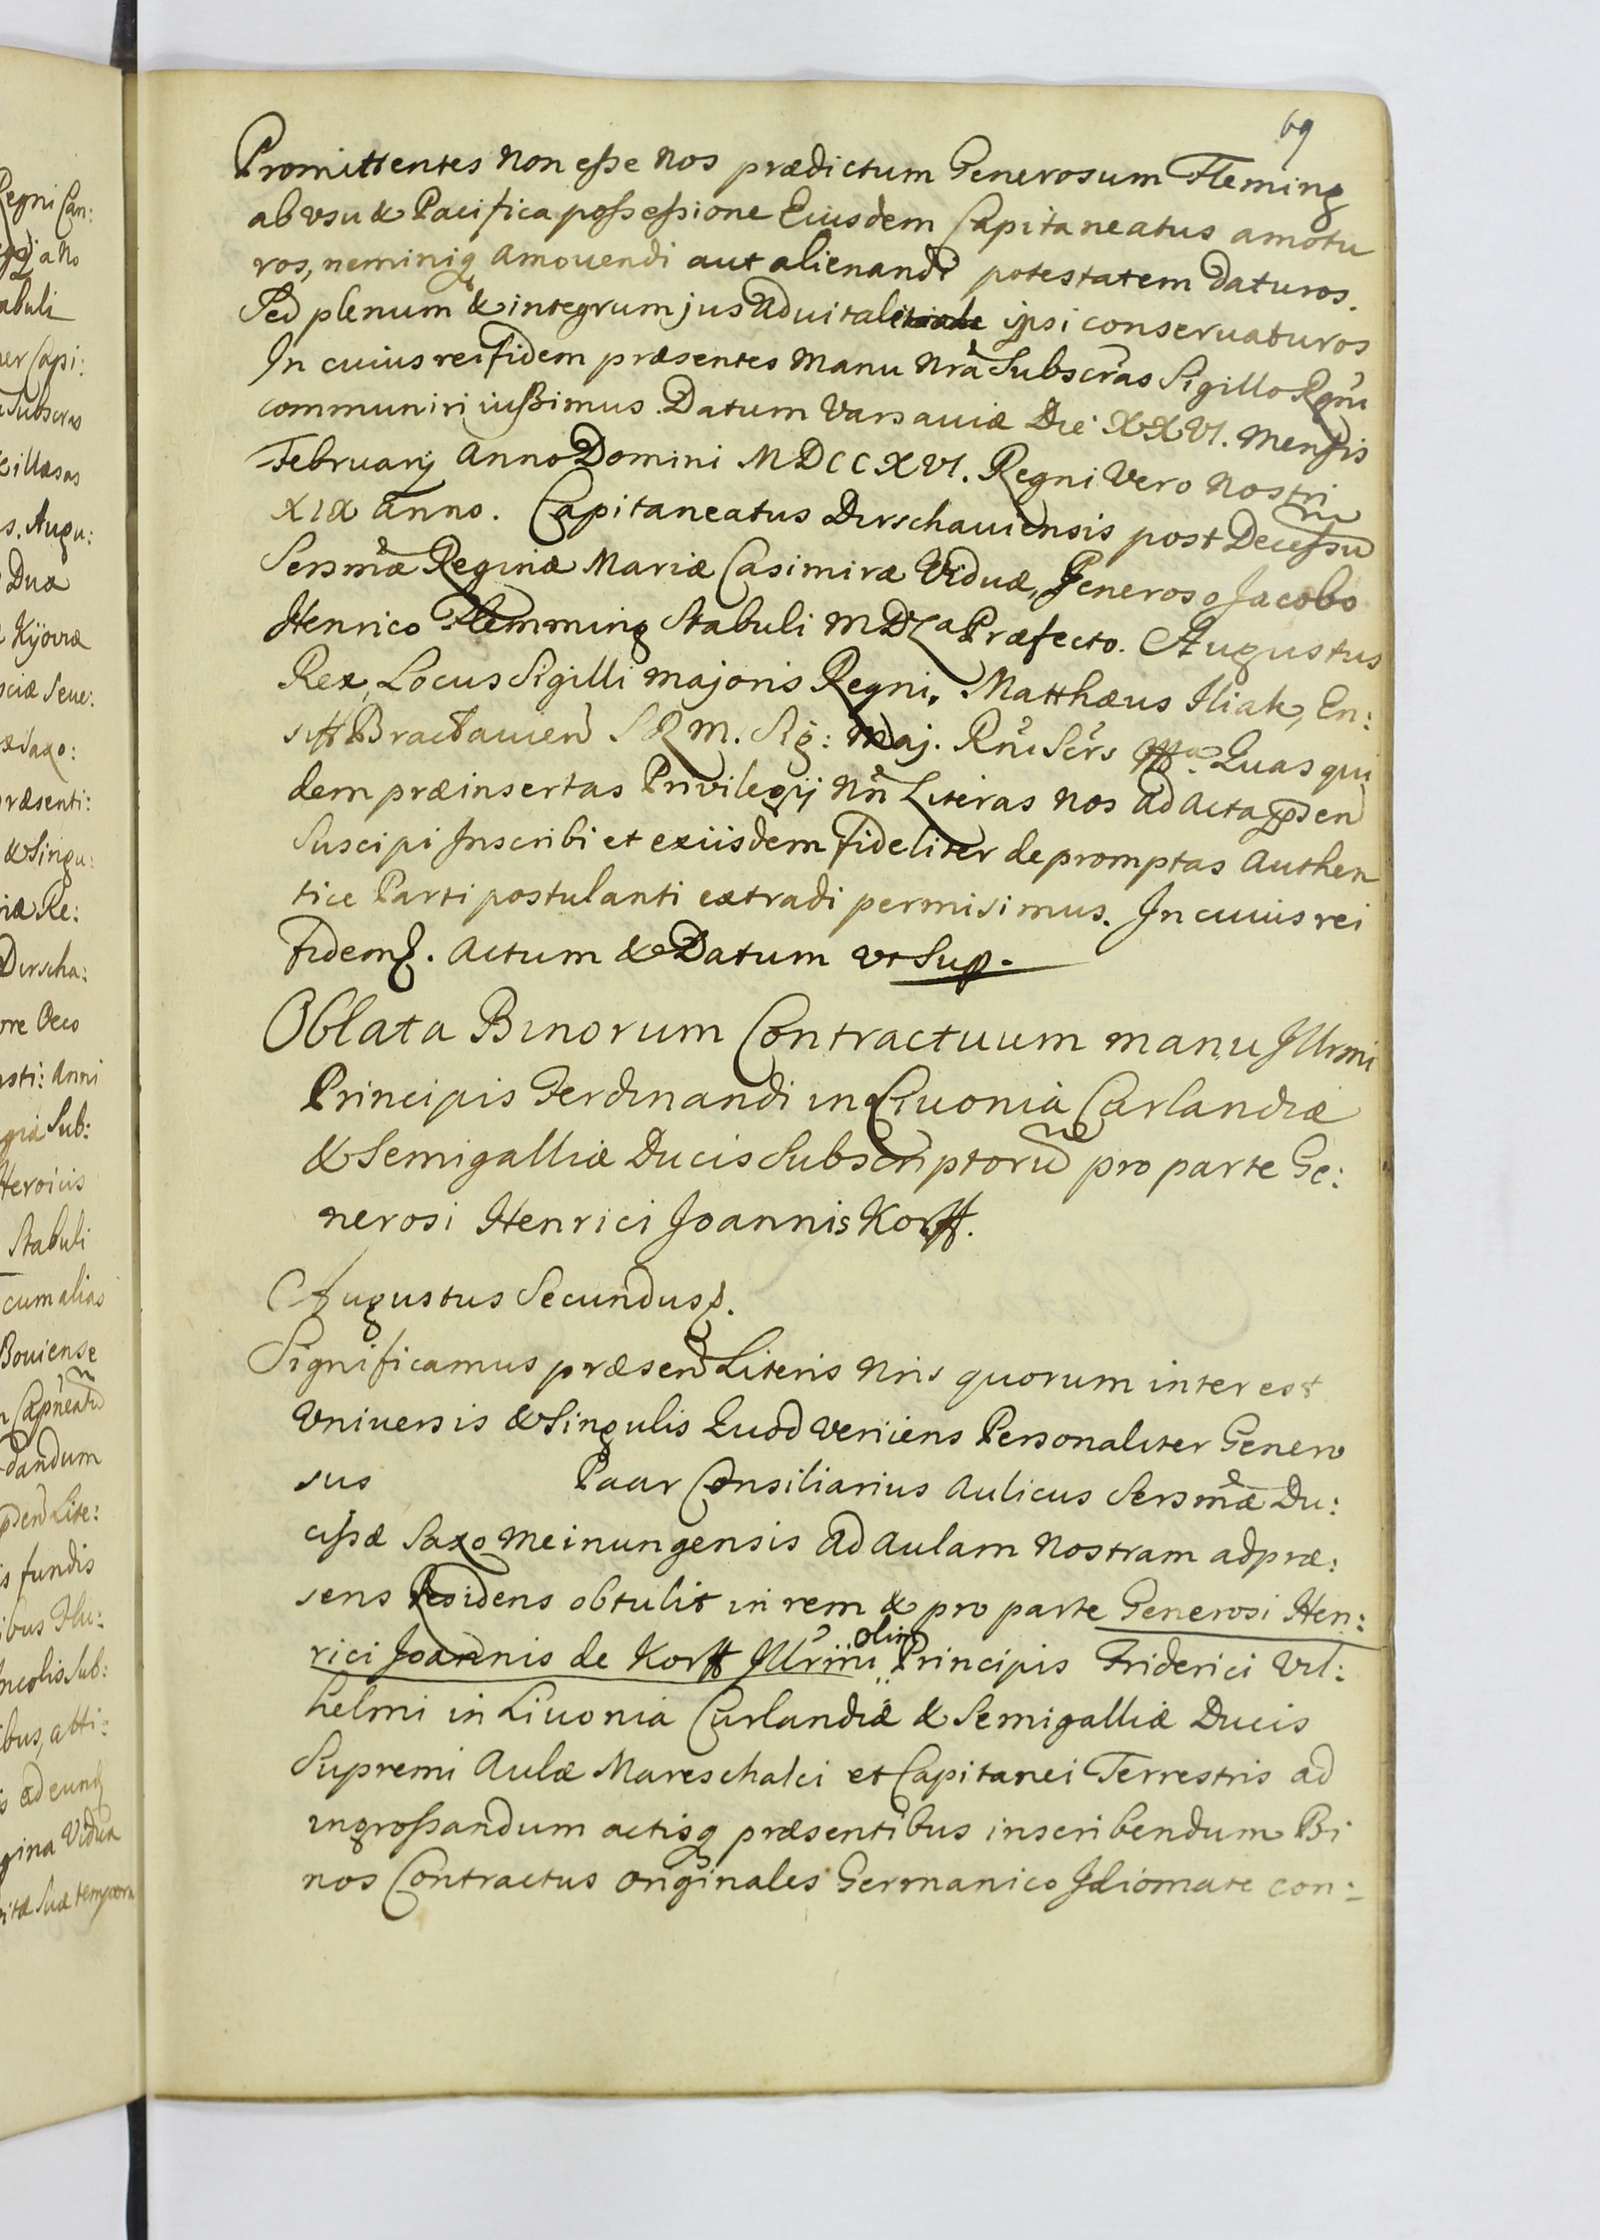 69
Promittentes non esse nos prædictum Generosum Fleming
ab vsu & Pacifica possessione Eiusdem Capitaneatus amotu
ros, neminiq amouendi aut alienandi potestatem daturos
Sed plenum & integrum jus aduitale ipsi conseruaturos
In cuius rei fidem præsentes manu nrã Subscras Sigillo Rgni
communiri iussimus. Datum Varsauiæ Die XXVI. Mensis
Februarij Anno Domini MDCCXVI. Regni Vero Nostri
XIX anno. Capitaneatus Dirschauiensis post Decessu
Sersmæ Reginæ Mariæ Casimiræ Viduæ, Generoso Jacobo
Henrico Flemming Stabuli MDLa Præfecto. Augustus
Rex, Locus Sigilli majoris Regni. Matthæus Iliak, En:
siff Braclauien SRM. Sig: Maj. Rni Scrs Quas qui
dem præinsertas Privilegij Nri Literas nos ad acta psen
Suscipi Inscribi et exiisdem fideliter depromptas Authen
tice Parti postulanti extradi permisimus. In cuius rei
fidem. Actum & Datum vt Sup.
Oblata Binorum Contractuum manu Illrmi
Principis Ferdinandi in Liuonia Carlandiæ
& Semigalliæ Ducis Subscriptoru pro parte Ge:
nerosi Henrici Joannis Korff.
Augustus Secundus.
Significamus præsen Literis Nris quorum interest
Vniuersis & Singulis Quod veniens Personaliter Genero
sus Paar Consiliarius Aulicus Sersmæ Du:
cissæ Saxo Meinungensis ad aulam Nostram adpræ:
sens Residens obtulit in rem & pro parte Generosi Hen:
rici Joannis de Korff Illrmi olim Principis Friderici Vil:
helmi in Liuonia Curlandiæ & Semigalliæ Ducis
Supremi Aulæ Mareschalci et Capitanei Terrestris ad
ingrossandum actisq præsentibus inscribendum Bi
nos Contractus originales Germanico Idiomate con: